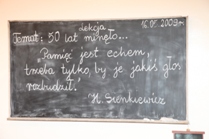 lekcja 16.05.2009r.
Temat: 50 lat minęło...
"Pamięć jest echem,
trzeba tylko, by je jakiś głos
rozbudził."
H. Sienkiewicz